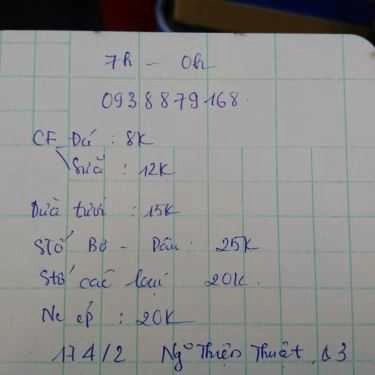 7h - 0h
0938879168
CF Đá : 8K
Sữa : 12K
Dừa tươi : 15K
Stố Bơ - Dâu 25K
Stố các loại 20K
Nc ép : 20K
174/2 Ng Thiện Thuật Q3